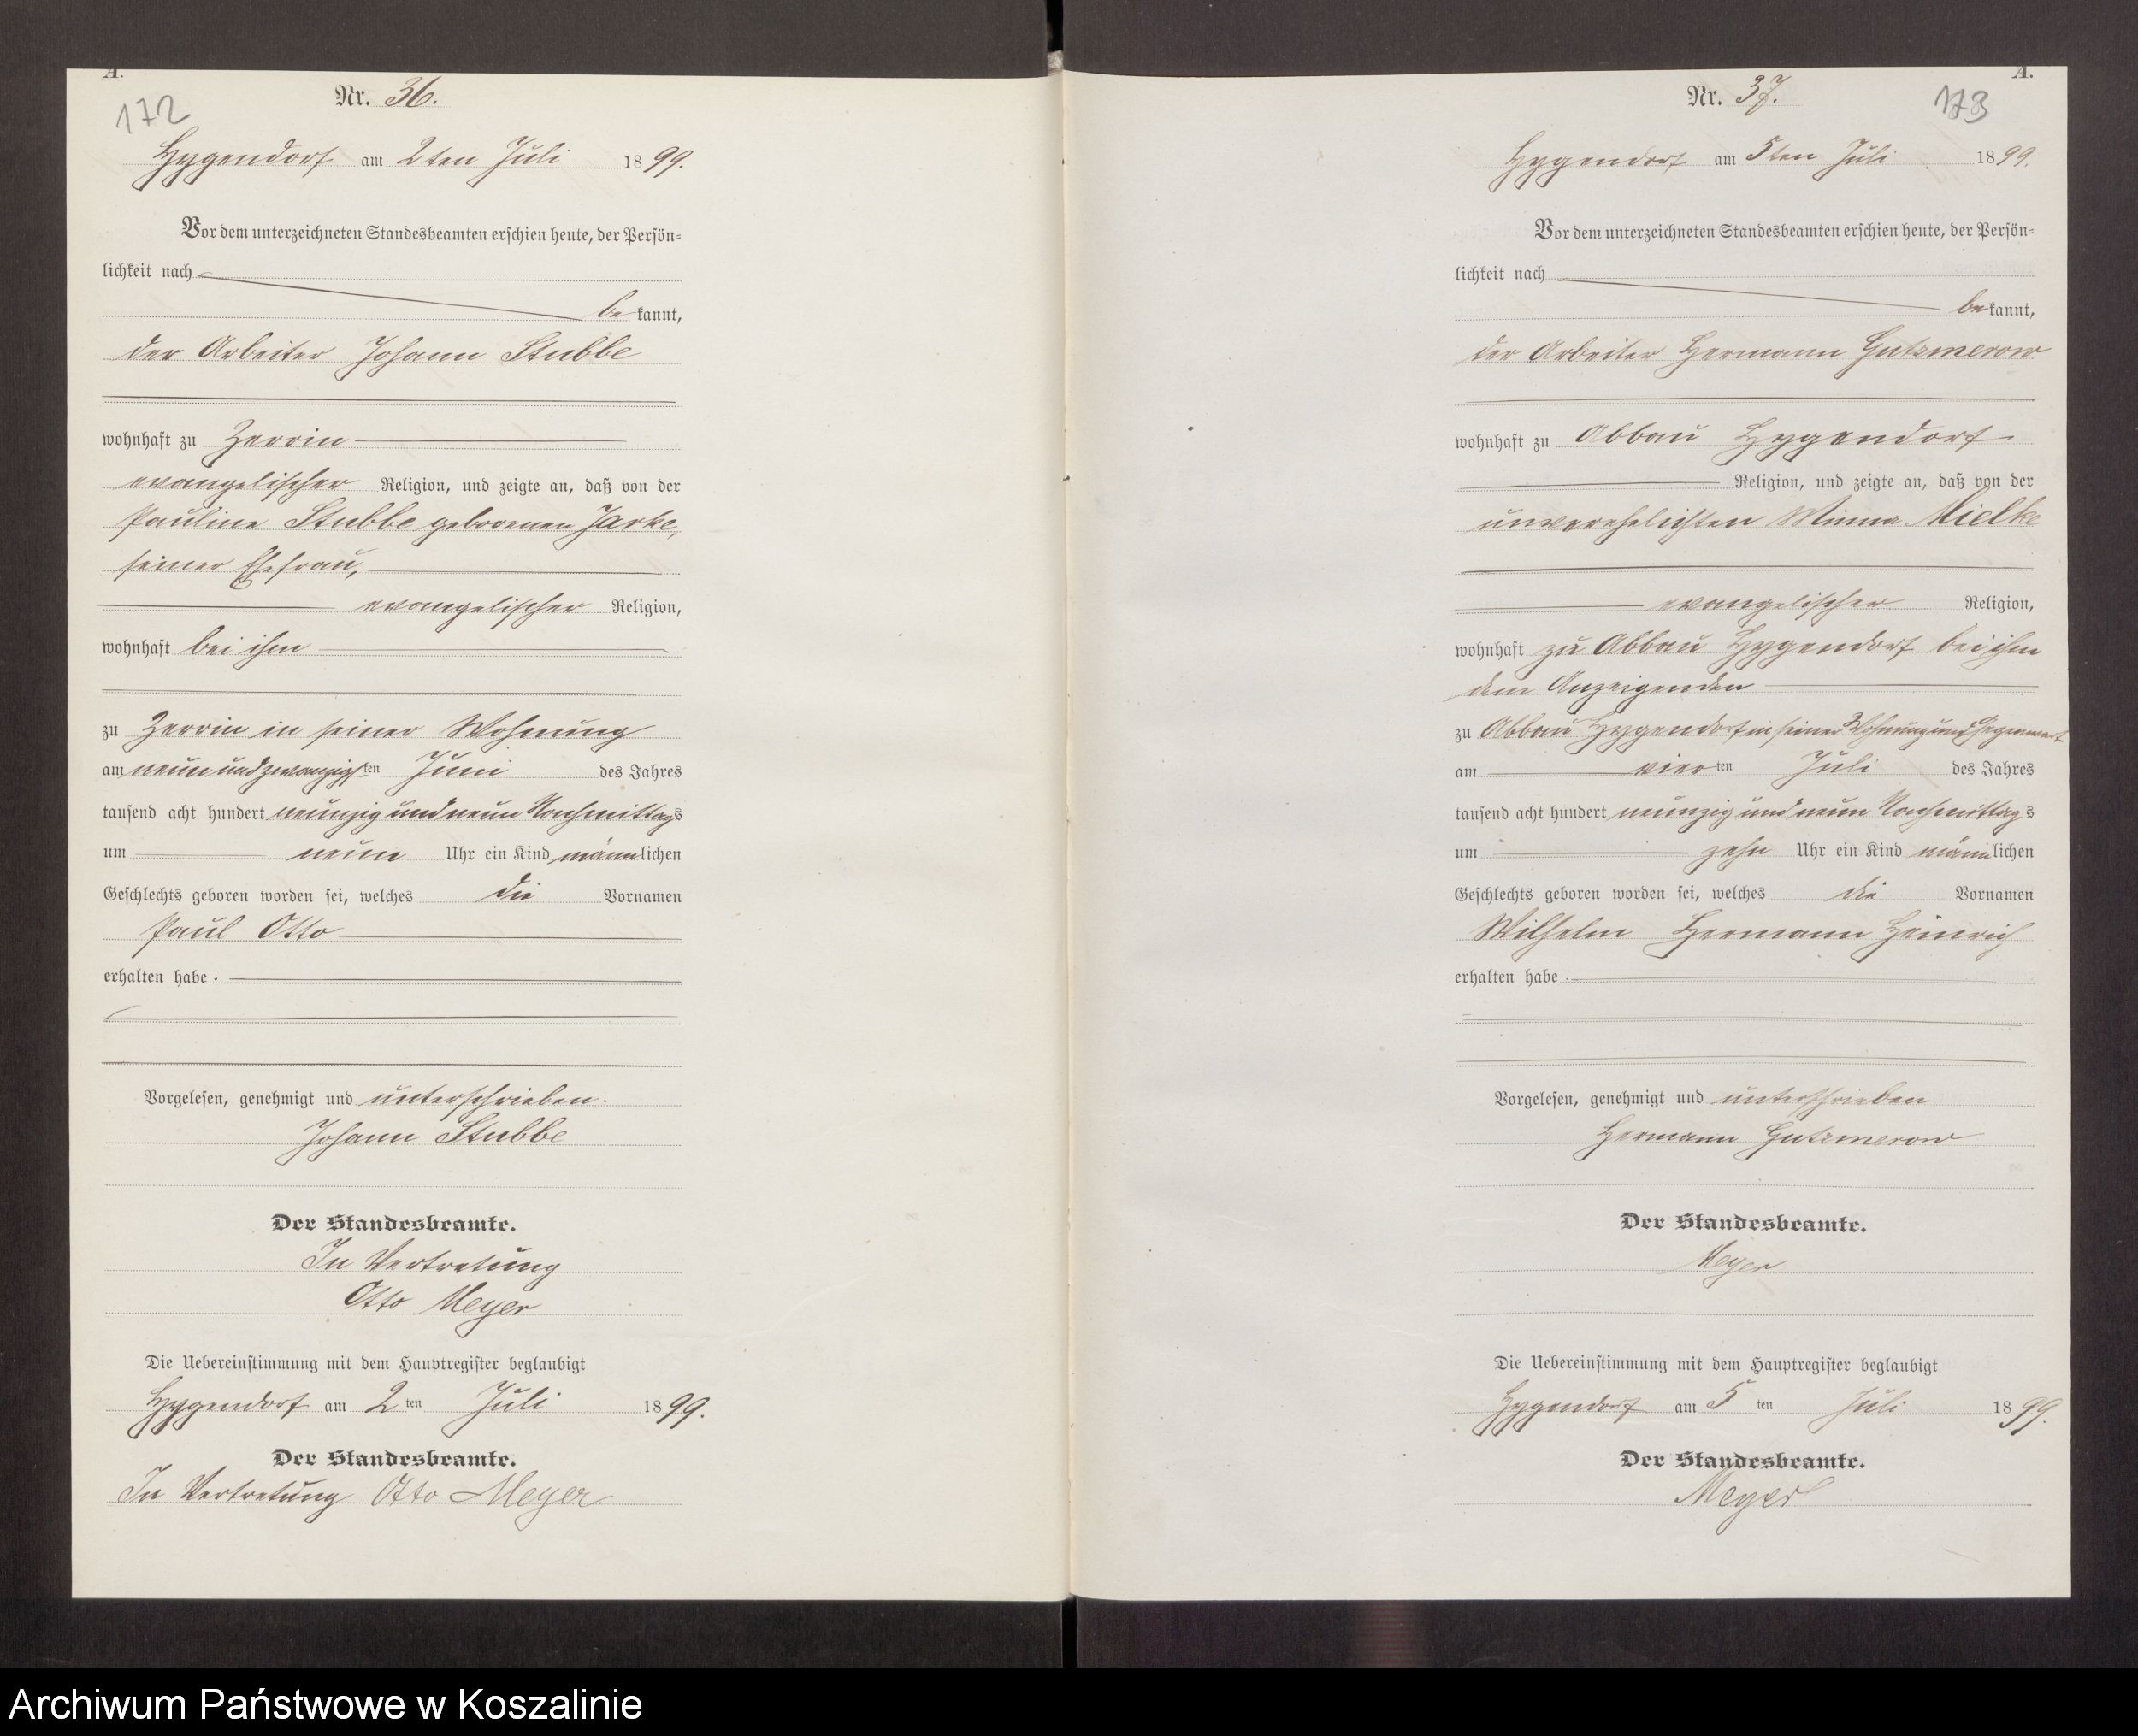 A.
172
Nr. 36.
Hygendorf am 2ten Juli 1899.
Vor dem unterzeichneten Standesbeamten erschien heute, der Persön=
lichkeit nach
be kannt,
der Arbeiter Johann Stubbe
wohnhaft zu Zerrin
evangelischer Religion, und zeigte an, daß von der
Pauline Stubbe geborenen Jarke,
seiner Ehefrau,
evangelischer Religion,
wohnhaft bei ihm
zu Zerrin in seiner Wohnung
am neun und zwanzigsten Juni des Jahres
tausend acht hundert neunzig und neun Nachmittags
um neun Uhr ein Kind männlichen
Geschlechts geboren worden sei, welches die Vornamen
Paul Otto
erhalten habe.
Vorgelesen, genehmigt und unterschrieben.
Johann Stubbe
Der Standesbeamte.
In Vertretung
Otto Meyer
Die Uebereinstimmung mit dem Hauptregister beglaubigt
Hygendorf am 2 ten Juli 1899.
Der Standesbeamte.
In Vertretung Otto Meyer
A.
Nr. 37.
173
Hygendorf am 5ten Juli 1899.
Vor dem unterzeichneten Standesbeamten erschien heute, der Persön=
lichkeit nach
bekannt,
der Arbeiter Hermann Gutzmerow
wohnhaft zu Abbau Hygendorf
Religion, und zeigte an, daß von der
unverehelichten Minna Mielke
evangelischer Religion,
wohnhaft zu Abbau Hygendorf bei ihm
dem Anzeigenden
zu Abbau Hygendorf in seiner Wohnung und Gegenwart
am vier ten Juli des Jahres
tausend acht hundert neunzig und neun Nachmittags
um zehn Uhr ein Kind männlichen
Geschlechts geboren worden sei, welches die Vornamen
Wilhelm Hermann Heinrich
erhalten habe.
Vorgelesen, genehmigt und unterschrieben
Hermann Gutzmerow
Der Standesbeamte.
Meyer
Die Uebereinstimmung mit dem Hauptregister beglaubigt
Hygendorf am 5 ten Juli 1899.
Der Standesbeamte.
Meyer
Archiwum Państwowe w Koszalinie